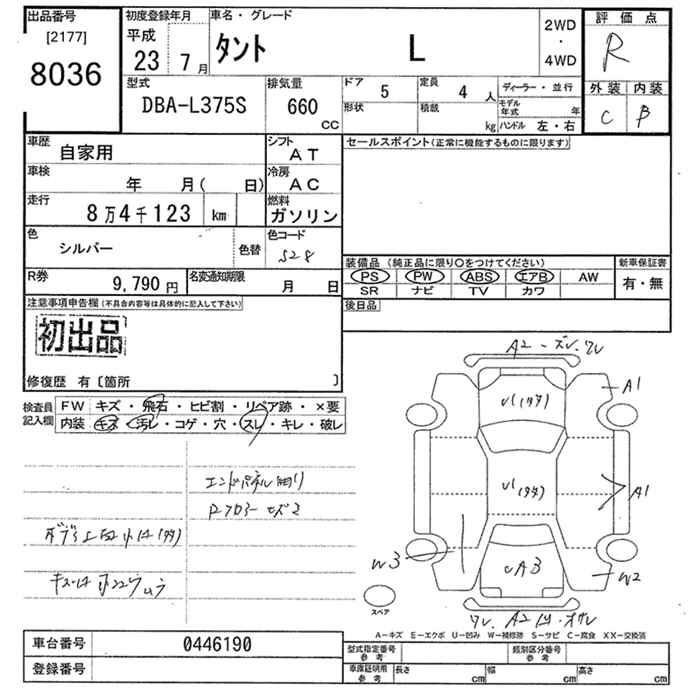 出品番号
[2177]
8036
初度登録年月
平成
23 7月
車名・グレード
タント L
2WD
・
4WD
評価点
R
外装 内装
C B
型式
DBA-L375S
排気量
660
cc
ドア 5
定員 4 人
形状
積載 kg
ディーラー・並行
モデル年式 年
ハンドル 左・右
車歴
自家用
シフト
AT
車検
年 月( 日)
冷房
AC
走行
8万4千123 km
燃料
ガソリン
色
シルバー
色替
色コード
S28
R券
9,790 円
名変通知期限
月 日
セールスポイント(正常に機能するものに限ります)
装備品(純正品に限り○をつけてください)
PS PW ABS エアB AW
SR ナビ TV カワ
新車保証書
有・無
後日品
注意事項申告欄(不具合内容等は具体的に記入して下さい)
初出品
修復歴 有〔箇所 〕
検査員記入欄
FW キズ・飛石・ヒビ割・リペア跡・×要
内装 キズ・汚レ・コゲ・穴・スレ・キレ・破レ
エンドパネル曲り
A2-ズレ、ワレ
A1
A1
W3
W2
スペア
A-キズ E-エクボ U-凹み W-補修跡 S-サビ C-腐食 XX-交換済
車台番号
0446190
登録番号
型式指定番号
参考
類別区分番号
参考
車庫証明用
参考
長さ cm
幅 cm
高さ cm